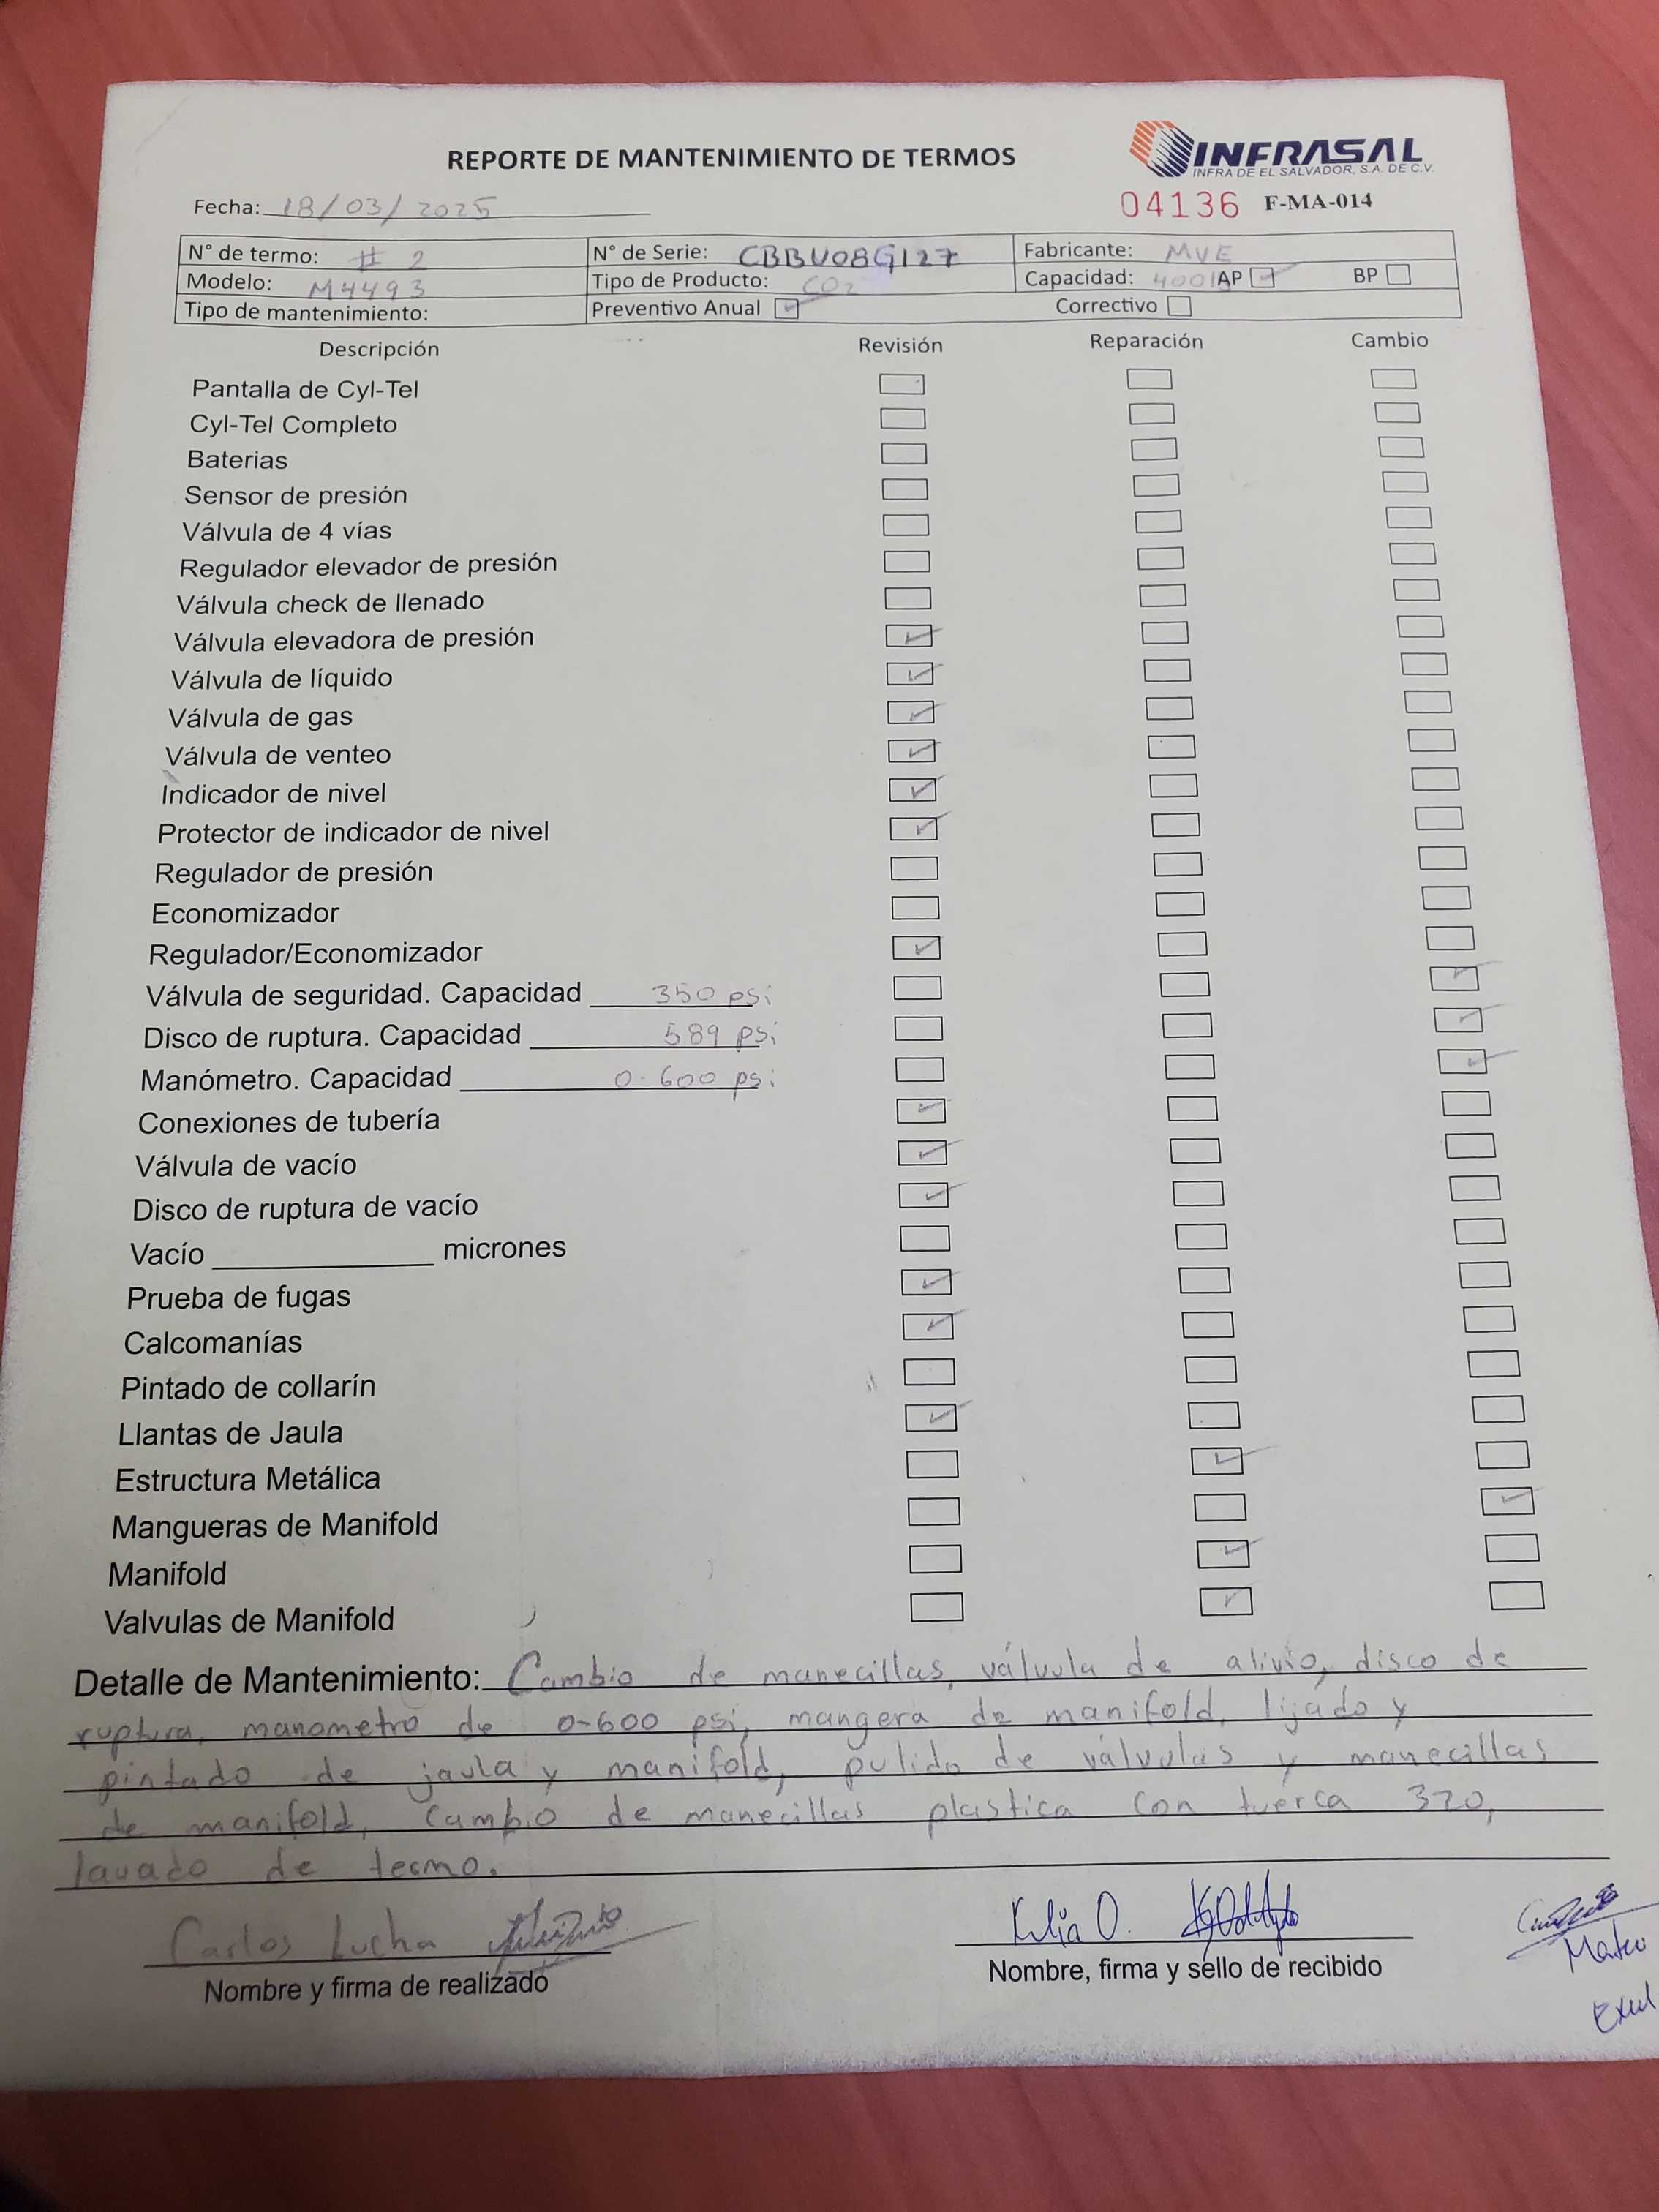 REPORTE DE MANTENIMIENTO DE TERMOS
INFRASAL
INFRA DE EL SALVADOR, S.A. DE C.V.
Fecha: 18/03/2025
04136 F-MA-014
N° de termo: # 2 N° de Serie: CBBU08G127 Fabricante: MVE
Modelo: M4493 Tipo de Producto: CO2 Capacidad: AP ✓ BP
Tipo de mantenimiento: Preventivo Anual ✓ Correctivo
Descripción Revisión Reparación Cambio
Pantalla de Cyl-Tel
Cyl-Tel Completo
Baterias
Sensor de presión
Válvula de 4 vías
Regulador elevador de presión
Válvula check de llenado
Válvula elevadora de presión ✓
Válvula de líquido ✓
Válvula de gas ✓
Válvula de venteo ✓
Indicador de nivel ✓
Protector de indicador de nivel ✓
Regulador de presión
Economizador
Regulador/Economizador ✓
Válvula de seguridad. Capacidad 350 psi ✓
Disco de ruptura. Capacidad 589 psi ✓
Manómetro. Capacidad 0-600 psi ✓
Conexiones de tubería ✓
Válvula de vacío ✓
Disco de ruptura de vacío ✓
Vacío micrones
Prueba de fugas ✓
Calcomanías ✓
Pintado de collarín
Llantas de Jaula ✓
Estructura Metálica ✓
Mangueras de Manifold ✓
Manifold ✓
Valvulas de Manifold ✓
Detalle de Mantenimiento: Cambio de manecillas, válvula de alivio, disco de
ruptura, manometro de 0-600 psi, mangera de manifold, lijado y
pintado de jaula y manifold, pulido de válvulas y manecillas
de manifold, cambio de manecillas plastica con tuerca 320,
lavado de termo.
Carlos Lucha
Nombre y firma de realizado
O.
Nombre, firma y sello de recibido
Mateo